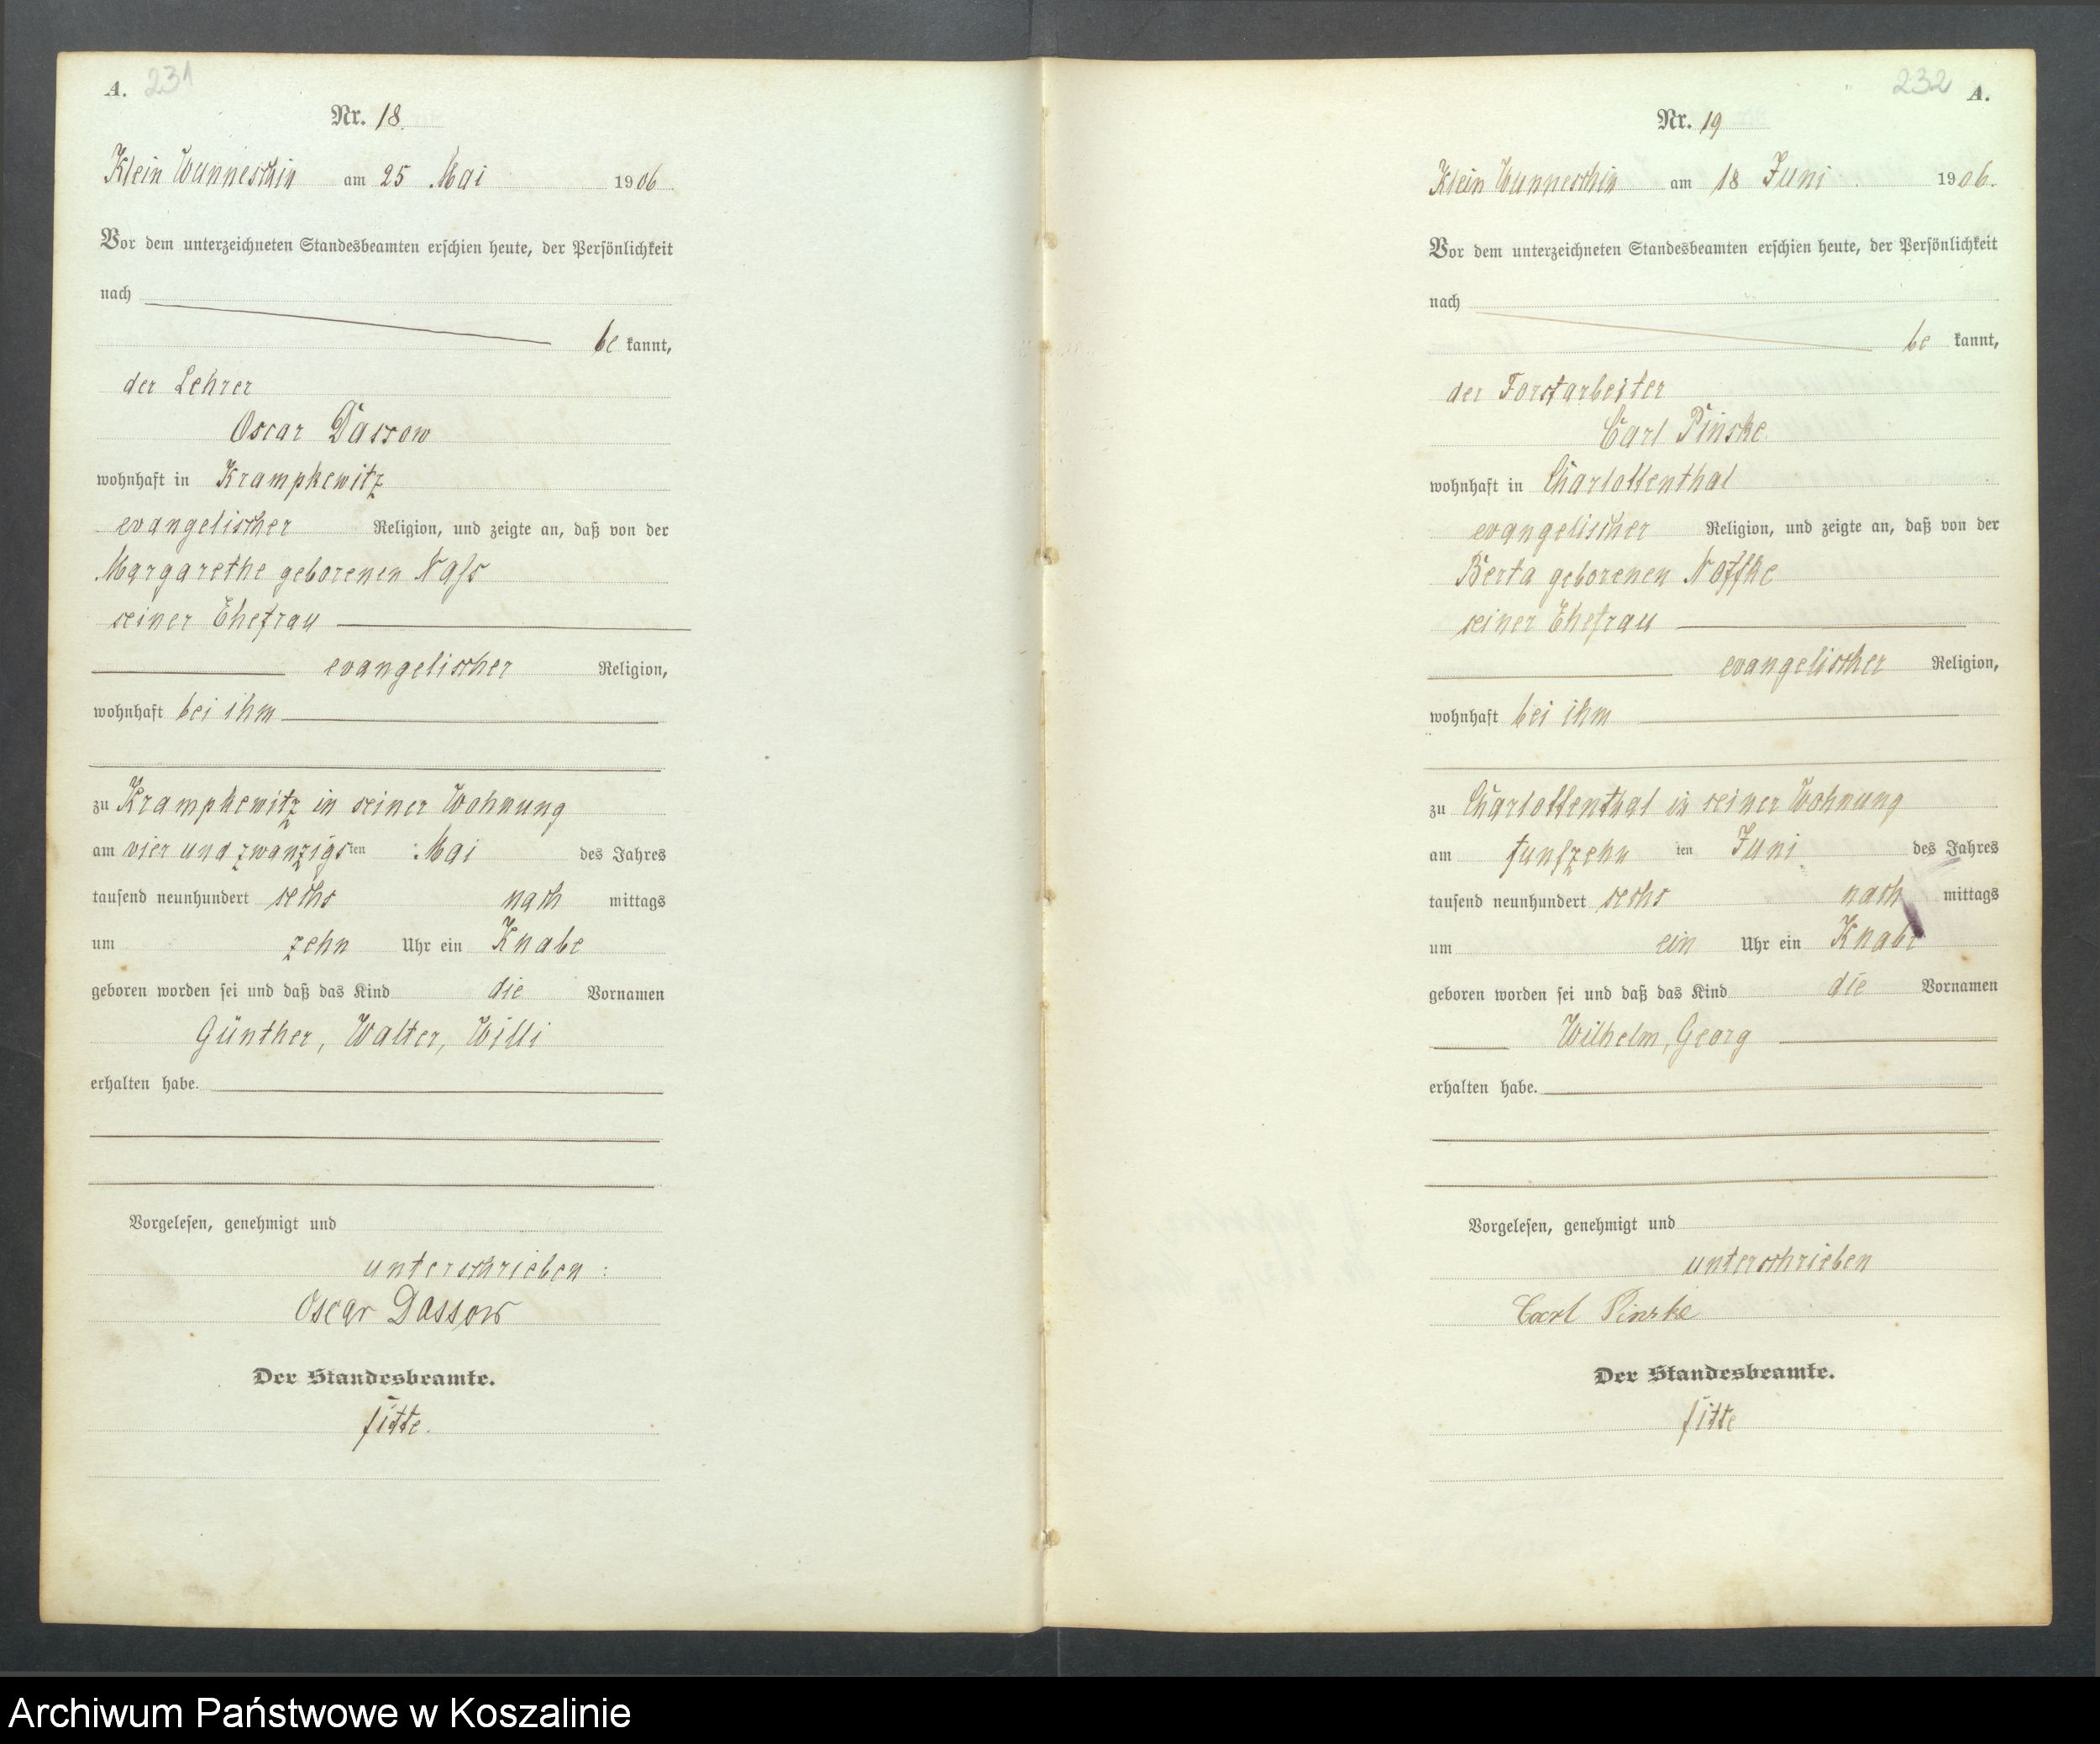 A. 231
Nr. 18.
Klein Wunneschin am 25 Mai 1906.
Vor dem unterzeichneten Standesbeamten erschien heute, der Persönlichkeit
nach
be kannt,
der Lehrer
Oscar Dassow
wohnhaft in Krampkewitz
evangelischer Religion, und zeigte an, daß von der
Margarethe geborenen Nass
seiner Ehefrau
evangelischer Religion,
wohnhaft bei ihm
zu Krampkewitz in seiner Wohnung
am vier und zwanzigsten Mai des Jahres
tausend neunhundert sechs nach mittags
um zehn Uhr ein Knabe
geboren worden sei und daß das Kind die Vornamen
Günther, Walter, Willi
erhalten habe.
Vorgelesen, genehmigt und
unterschrieben:
Oscar Dassow
Der Standesbeamte.
232 A.
Nr. 19
Klein Wunneschin am 18 Juni 1906.
Vor dem unterzeichneten Standesbeamten erschien heute, der Persönlichkeit
nach
be kannt,
der Forstarbeiter
Carl Pinske
wohnhaft in Charlottenthal
evangelischer Religion, und zeigte an, daß von der
Berta geborenen Noffke
seiner Ehefrau
evangelischer Religion,
wohnhaft bei ihm
zu Charlottenthal in seiner Wohnung
am funfzehn ten Juni des Jahres
tausend neunhundert sechs nach mittags
um ein Uhr ein Knabe
geboren worden sei und daß das Kind die Vornamen
Wilhelm, Georg
erhalten habe.
Vorgelesen, genehmigt und
unterschrieben
Carl Pinske
Der Standesbeamte.
Archiwum Państwowe w Koszalinie